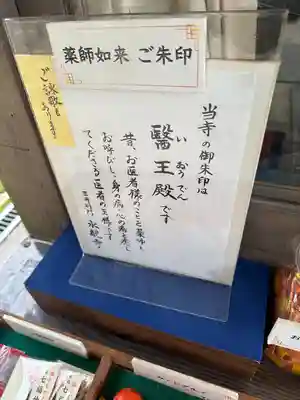 薬師如来 ご朱印
ご詠歌も
あります
当寺の御朱印は
醫王殿です
い おう でん
昔、お医者様のことを薬師と
お呼びし、身の病・心の病を癒し
てくださるお医者の王様です